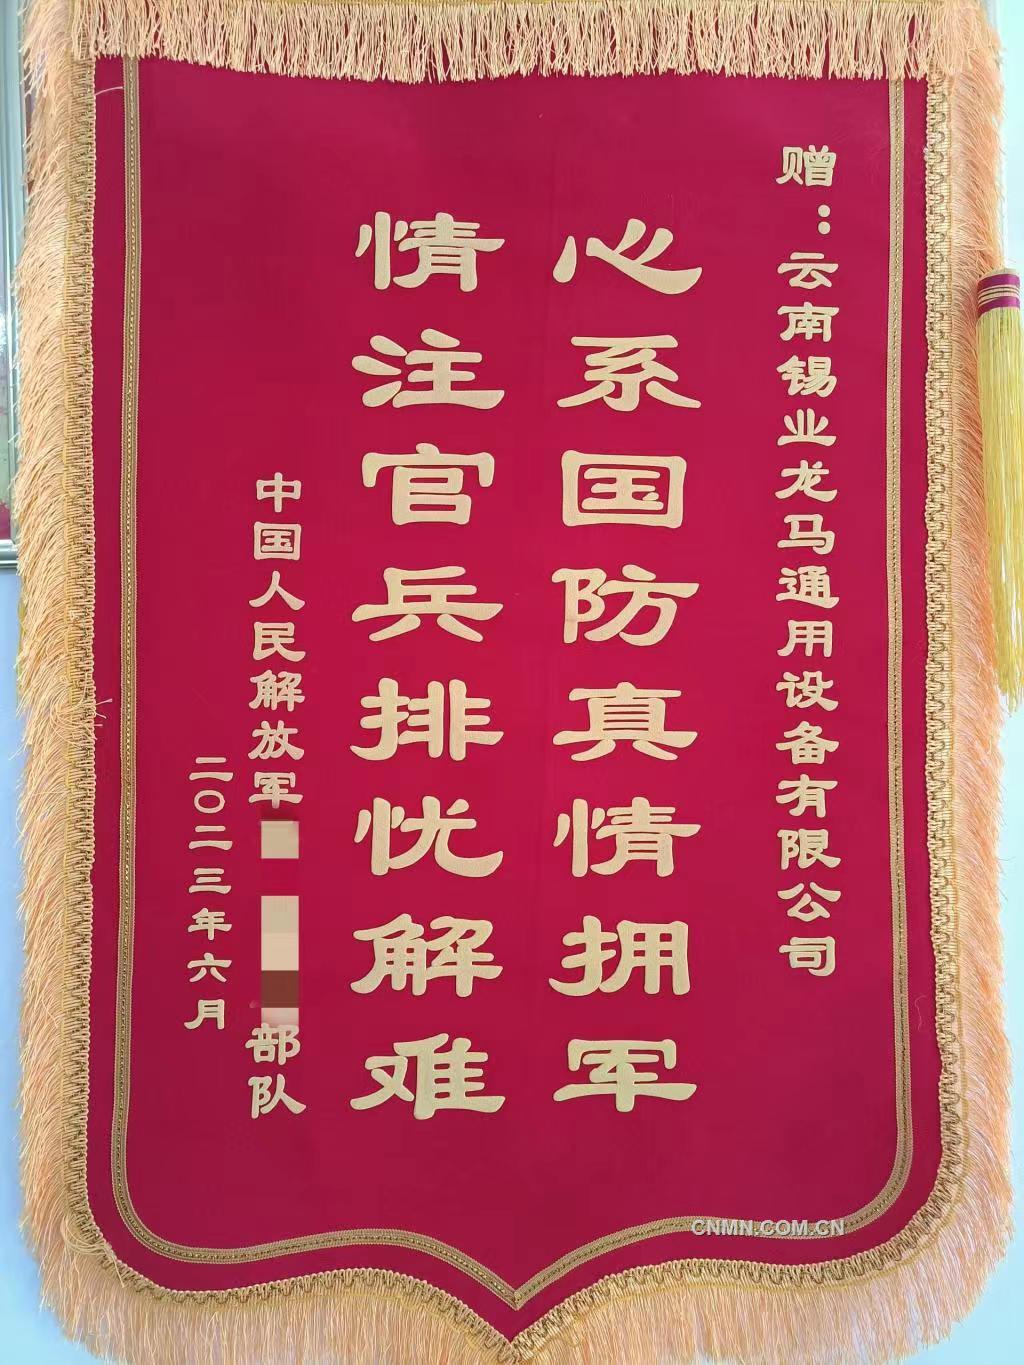 赠：云南锡业龙马通用设备有限公司
心系国防真情拥军
情注官兵排忧解难
中国人民解放军 部队
二〇二三年六月
CNMN.COM.CN